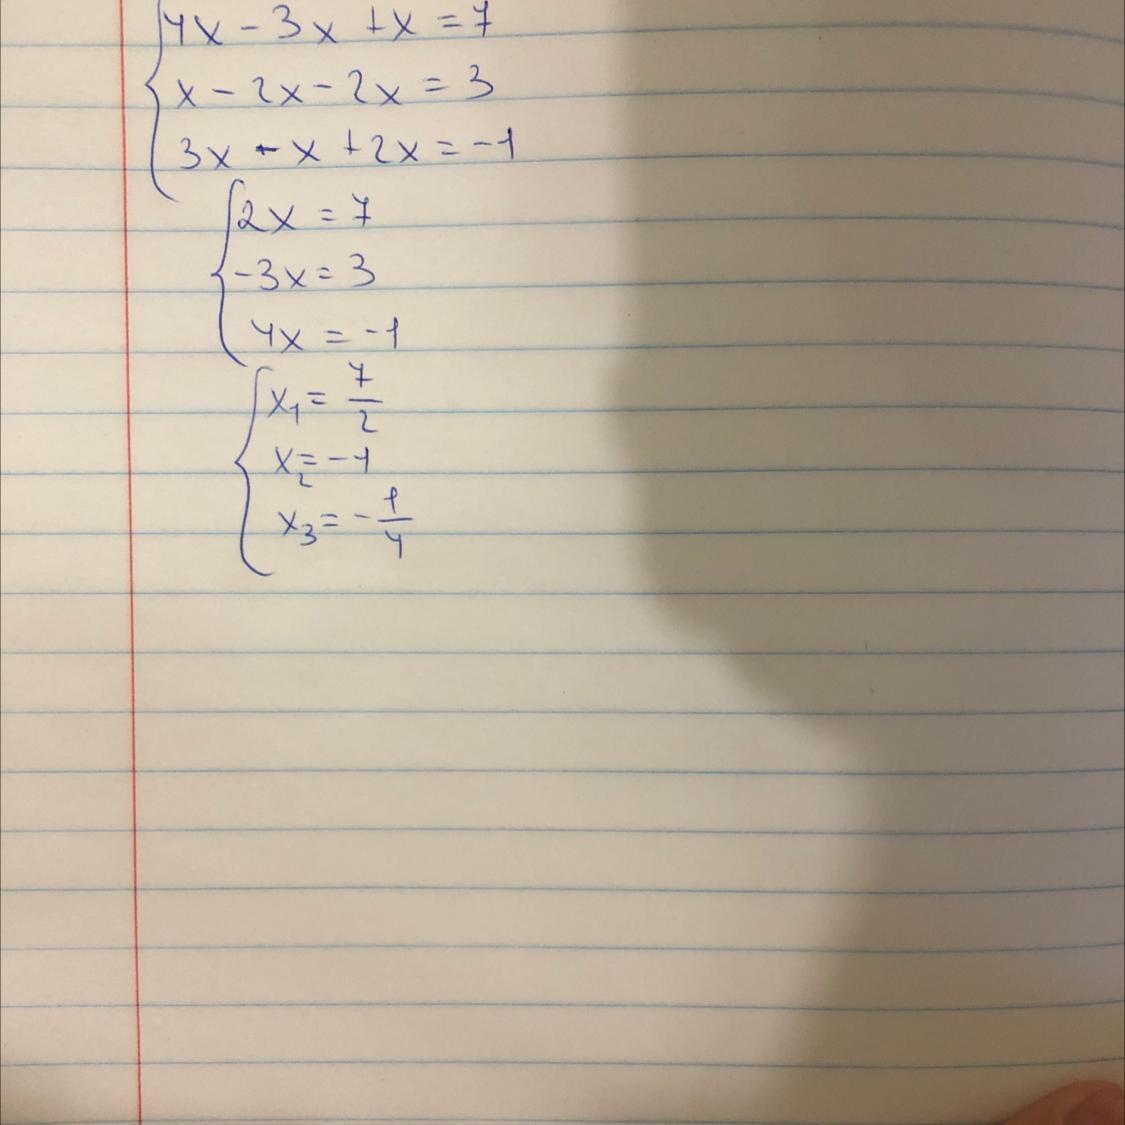 4x - 3x + x = 7
x - 2x - 2x = 3
3x - x + 2x = -1
2x = 7
-3x = 3
4x = -1
x₁ = 7/2
x₂ = -1
x₃ = -1/4